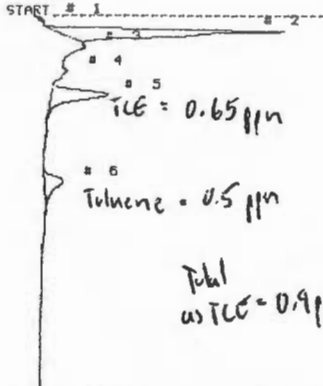 START # 1
# 2
# 3
# 4
# 5
TCE = 0.65 ppm
# 6
Toluene = 0.5 ppm
Total
as TCE = 0.9p